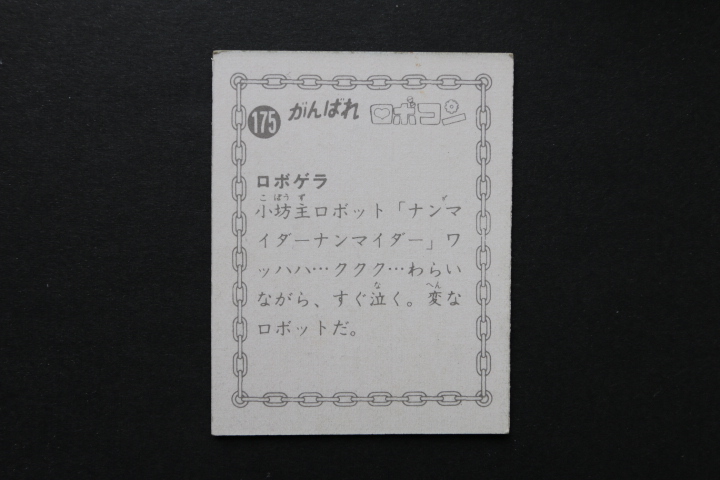 175 がんばれ ロボコン
ロボゲラ
小坊主ロボット「ナンマ
イダーナンマイダー」ワ
ッハハ…ククク…わらい
ながら、すぐ泣く。変な
ロボットだ。